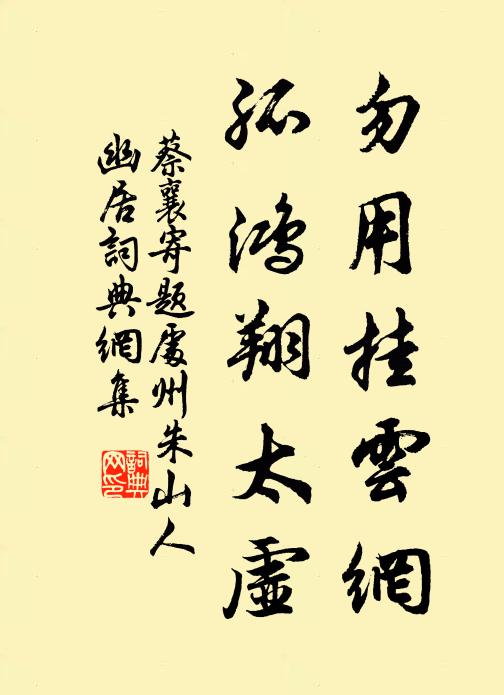 勿用挂雲網
孤鸿翔太虛
蔡襄寄题處州朱山人
幽居詞典網集
詞典網印